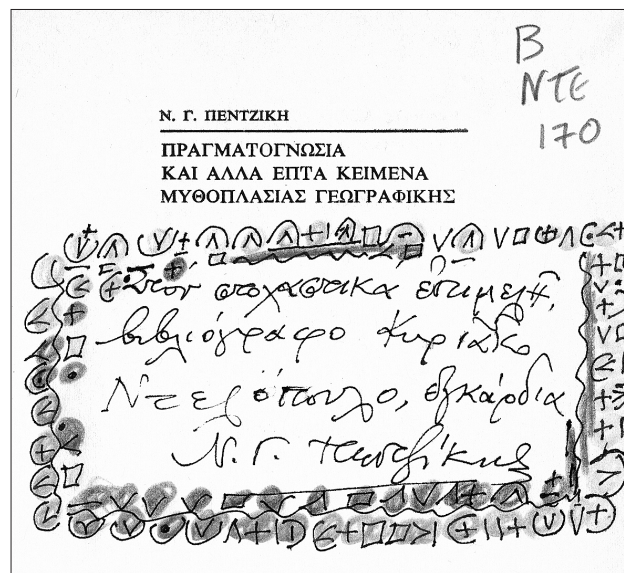 Β
ΝΤΕ
170
Ν. Γ. ΠΕΝΤΖΙΚΗ
ΠΡΑΓΜΑΤΟΓΝΩΣΙΑ
ΚΑΙ ΑΛΛΑ ΕΠΤΑ ΚΕΙΜΕΝΑ
ΜΥΘΟΠΛΑΣΙΑΣ ΓΕΩΓΡΑΦΙΚΗΣ
Στον στοχαστικά επιμελή,
βιβλιόγραφο Κυριάκο
Ντελόπουλο, εγκάρδια
Ν. Γ. Πεντζίκης